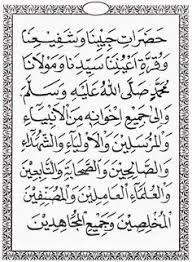 حَضَرَاتِ حَبِيْبِنَا وَشَفِيْعِنَا
وَقُرَّةِ أَعْيُنِنَا سَيِّدِنَا وَمَوْلَانَا
مُحَمَّدٍ صَلَّى اللهُ عَلَيْهِ وَسَلَّمَ
وَإِلَى جَمِيْعِ إِخْوَانِهِ مِنَ الْأَنْبِيَاءِ
وَالْمُرْسَلِيْنَ وَالْأَوْلِيَاءِ وَالشُّهَدَاءِ
وَالصَّالِحِيْنَ وَالصَّحَابَةِ وَالتَّابِعِيْنَ
وَالْعُلَمَاءِ الْعَامِلِيْنَ وَالْمُصَنِّفِيْنَ
الْمُخْلِصِيْنَ وَجَمِيْعِ الْمُجَاهِدِيْنَ